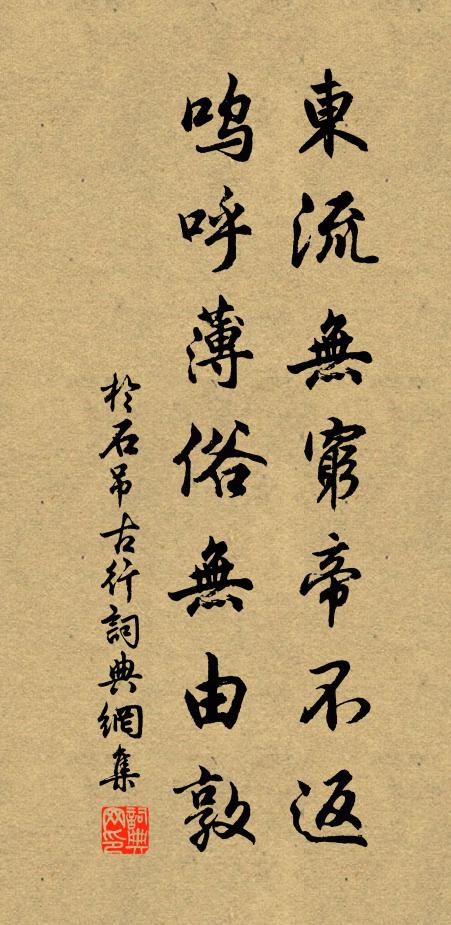 東流無窮帝不返
嗚呼薄俗無由敦
於石吊古行詞典網集
詞典網印